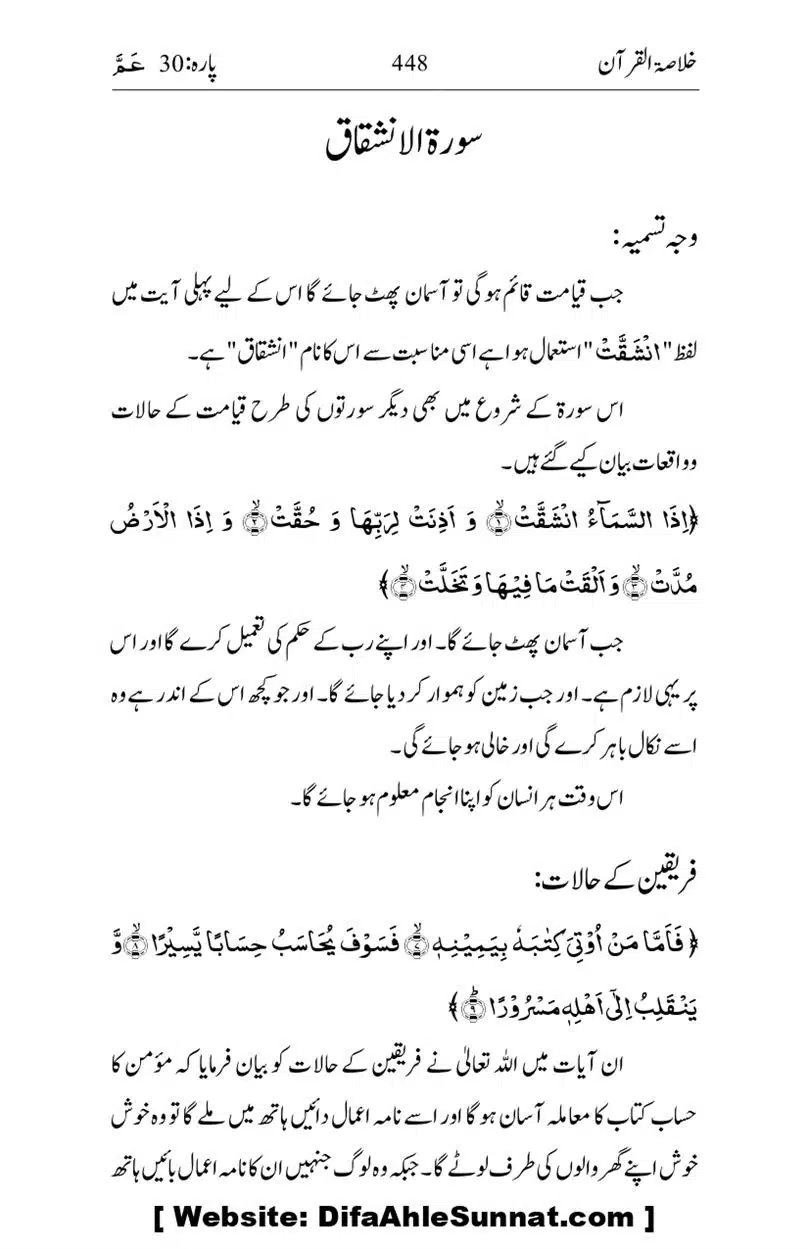 خلاصۃ القرآن 448 پارہ:30 عَمَّ
سورۃ الانشقاق
وجہ تسمیہ:
جب قیامت قائم ہو گی تو آسمان پھٹ جائے گا اس کے لیے پہلی آیت میں
لفظ "انْشَقَّتْ" استعمال ہوا ہے اسی مناسبت سے اس کا نام "انشقاق" ہے۔
اس سورۃ کے شروع میں بھی دیگر سورتوں کی طرح قیامت کے حالات
وواقعات بیان کیے گئے ہیں۔
﴿اِذَا السَّمَآءُ انْشَقَّتْ ۙ﴿۱﴾ وَ اَذِنَتْ لِرَبِّهَا وَ حُقَّتْ ۙ﴿۲﴾ وَ اِذَا الْاَرْضُ
مُدَّتْ ۙ﴿۳﴾ وَ اَلْقَتْ مَا فِیْهَا وَ تَخَلَّتْ ۙ﴿۴﴾﴾
جب آسمان پھٹ جائے گا۔ اور اپنے رب کے حکم کی تعمیل کرے گا اور اس
پر یہی لازم ہے۔ اور جب زمین کو ہموار کر دیا جائے گا۔ اور جو کچھ اس کے اندر ہے وہ
اسے نکال باہر کرے گی اور خالی ہو جائے گی۔
اس وقت ہر انسان کو اپنا انجام معلوم ہو جائے گا۔
فریقین کے حالات:
﴿فَاَمَّا مَنْ اُوْتِیَ کِتٰبَهٗ بِیَمِیْنِهٖ ۙ﴿۷﴾ فَسَوْفَ یُحَاسَبُ حِسَابًا یَّسِیْرًا ۙ﴿۸﴾ وَّ
یَنْقَلِبُ اِلٰۤی اَهْلِهٖ مَسْرُوْرًا ؕ﴿۹﴾﴾
ان آیات میں اللہ تعالیٰ نے فریقین کے حالات کو بیان فرمایا کہ مؤمن کا
حساب کتاب کا معاملہ آسان ہو گا اور اسے نامہ اعمال دائیں ہاتھ میں ملے گا تو وہ خوش
خوش اپنے گھر والوں کی طرف لوٹے گا۔ جبکہ وہ لوگ جنہیں ان کا نامہ اعمال بائیں ہاتھ
[ Website: DifaAhleSunnat.com ]